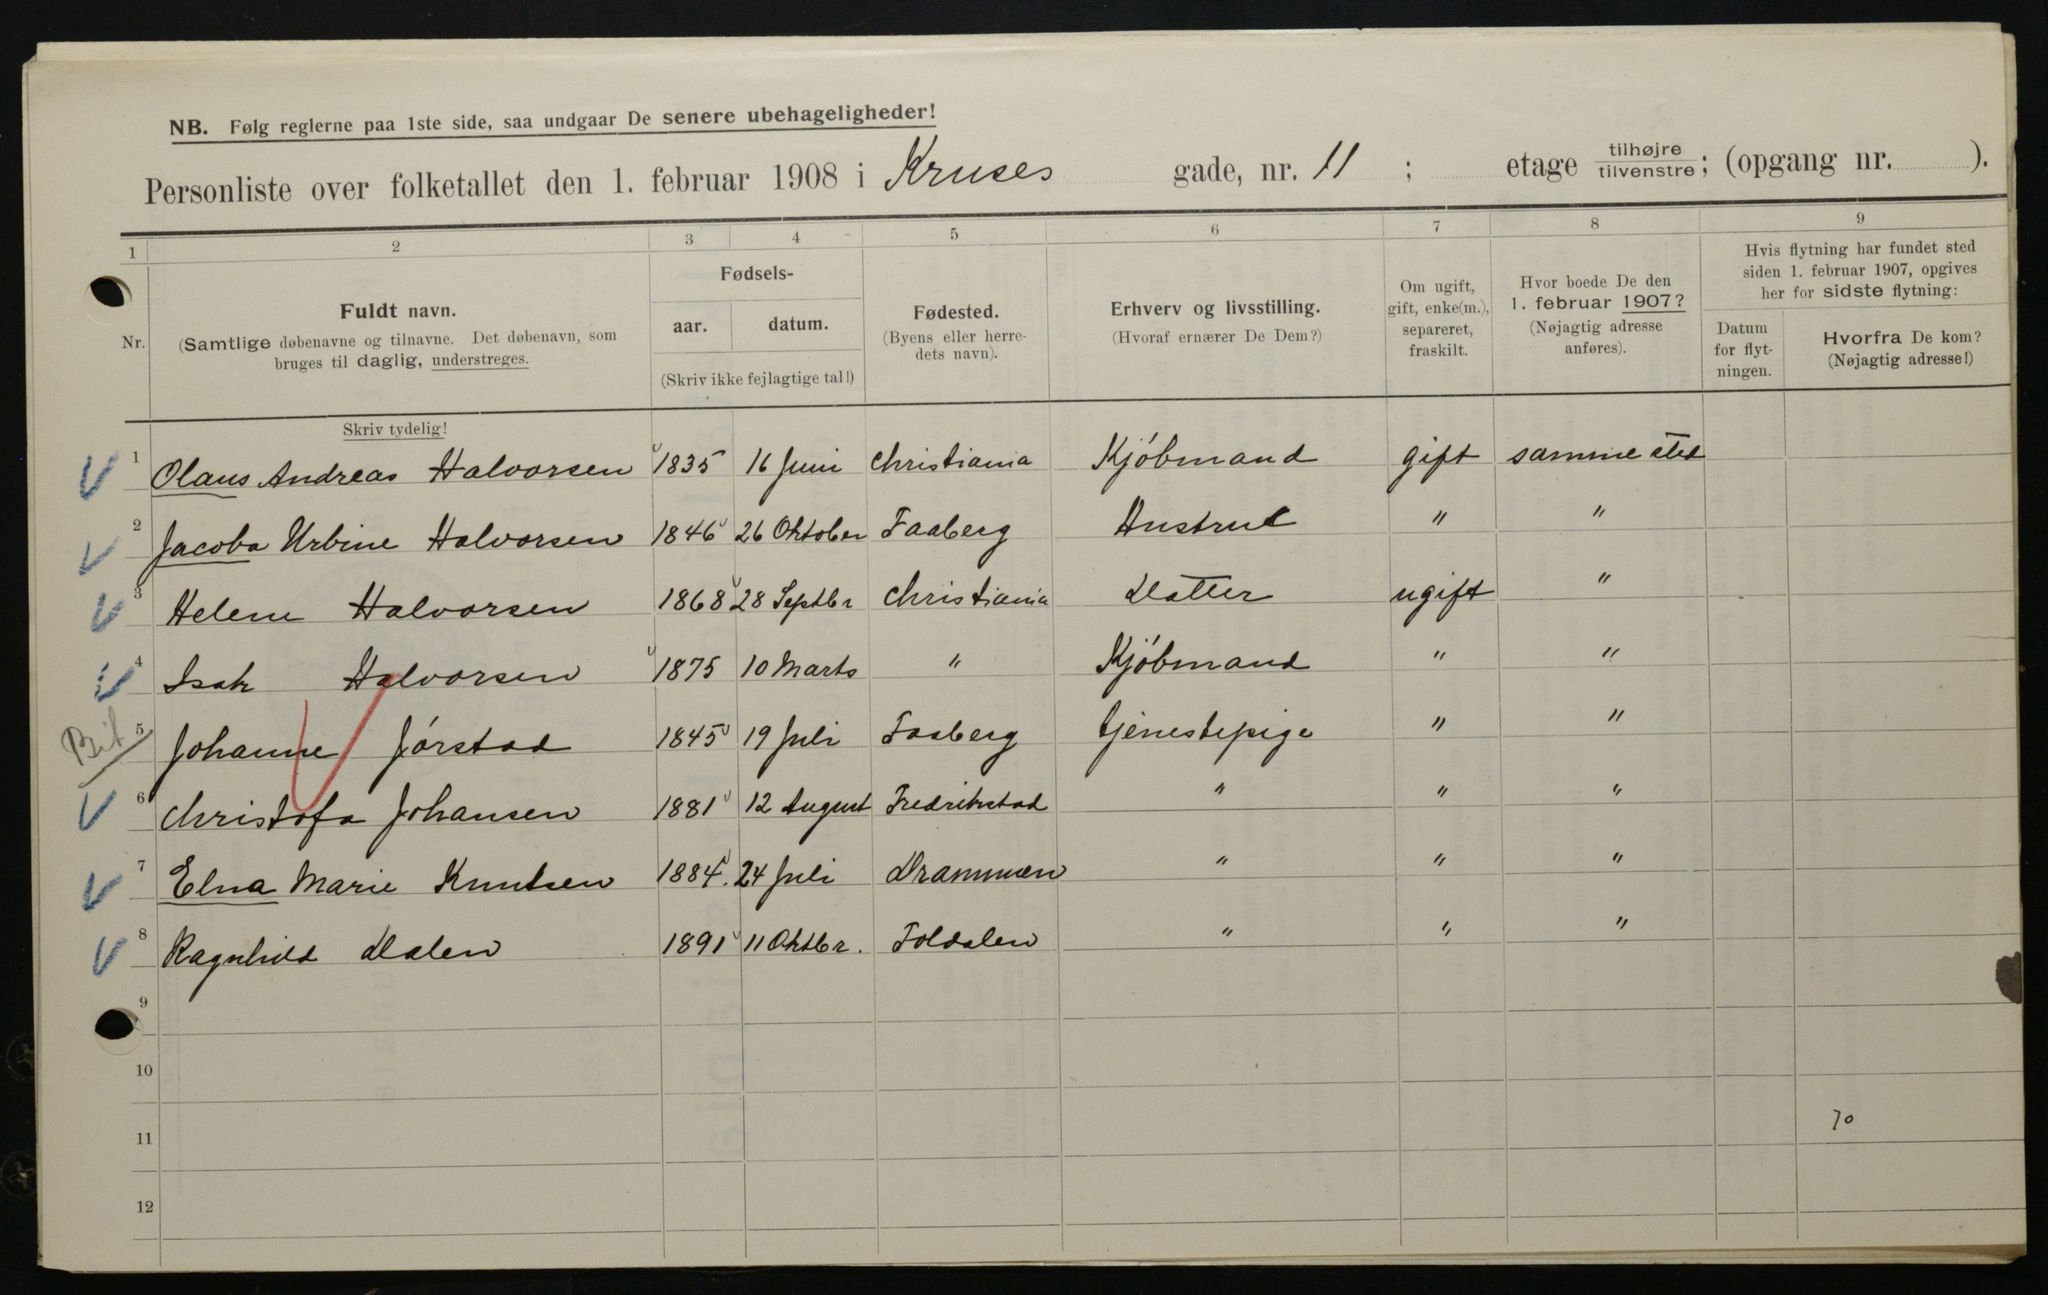 NB. Følg reglerne paa 1ste side, saa undgaar De senere ubehageligheder!
Personliste over folketallet den 1. februar 1908 i Kruses gade, nr. 11 ; etage tilhøjre tilvenstre; (opgang nr. ).
1 2 3 4 5 6 7 8 9
Nr.
Fuldt navn.
(Samtlige døbenavne og tilnavne. Det døbenavn, som
bruges til daglig, understreges.
Fødsels-
aar. datum.
(Skriv ikke fejlagtige tal!)
Fødested.
(Byens eller herre-
dets navn).
Erhverv og livsstilling.
(Hvoraf ernærer De Dem?)
Om ugift,
gift, enke(m.),
separeret,
fraskilt.
Hvor boede De den
1. februar 1907?
(Nøjagtig adresse
anføres).
Hvis flytning har fundet sted
siden 1. februar 1907, opgives
her for sidste flytning:
Datum
for flyt-
ningen.
Hvorfra De kom?
(Nøjagtig adresse!)
Skriv tydelig!
1 Olaus Andreas Halvorsen 1835 16 Juni Christiania Kjóbmand gift samme sted
2 Jacoba Urbine Halvorsen 1846 26 Oktober Faaberg Hustru " "
3 Helene Halvorsen 1868 28 Septbr Christiania Datter ugift "
4 Isak Halvorsen 1875 10 Marts " Kjóbmand " "
5 Johanne Jórstad 1845 19 Juli Faaberg tjenestepige " "
6 Christofa Johansen 1881 12 August Fredrikstad " " "
7 Elna Marie Knutsen 1884. 24 Juli Drammen " " "
8 Ragnhild Dalen 1891 11 Oktbr. Foldalen " " "
9
10
11
70
12